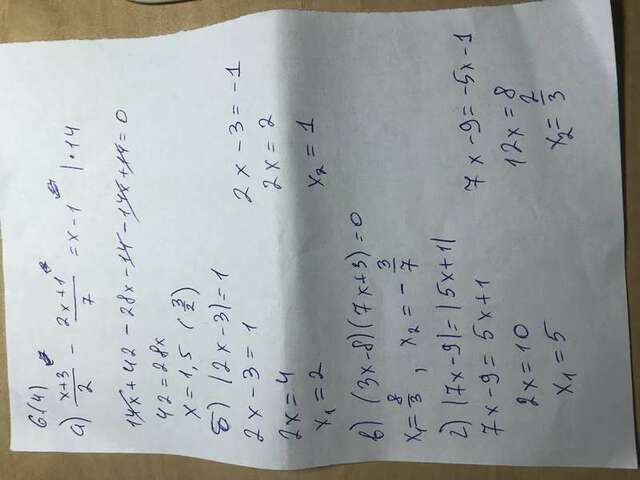 6(4)
а) (x+3)/2 - (2x+1)/7 = x-1 | · 14
14x + 42 - 28x - 14 - 14x + 14 = 0
42 = 28x
x = 1,5 (3/2)
б) |2x-3| = 1
2x - 3 = 1
2x - 3 = -1
2x = 4
2x = 2
x₁ = 2
x₂ = 1
в) (3x-8)(7x+3) = 0
x₁ = 8/3 , x₂ = - 3/7
г) |7x-9| = |5x+1|
7x-9 = 5x+1
7x-9 = -5x-1
2x = 10
12x = 8
x₁ = 5
x₂ = 2/3